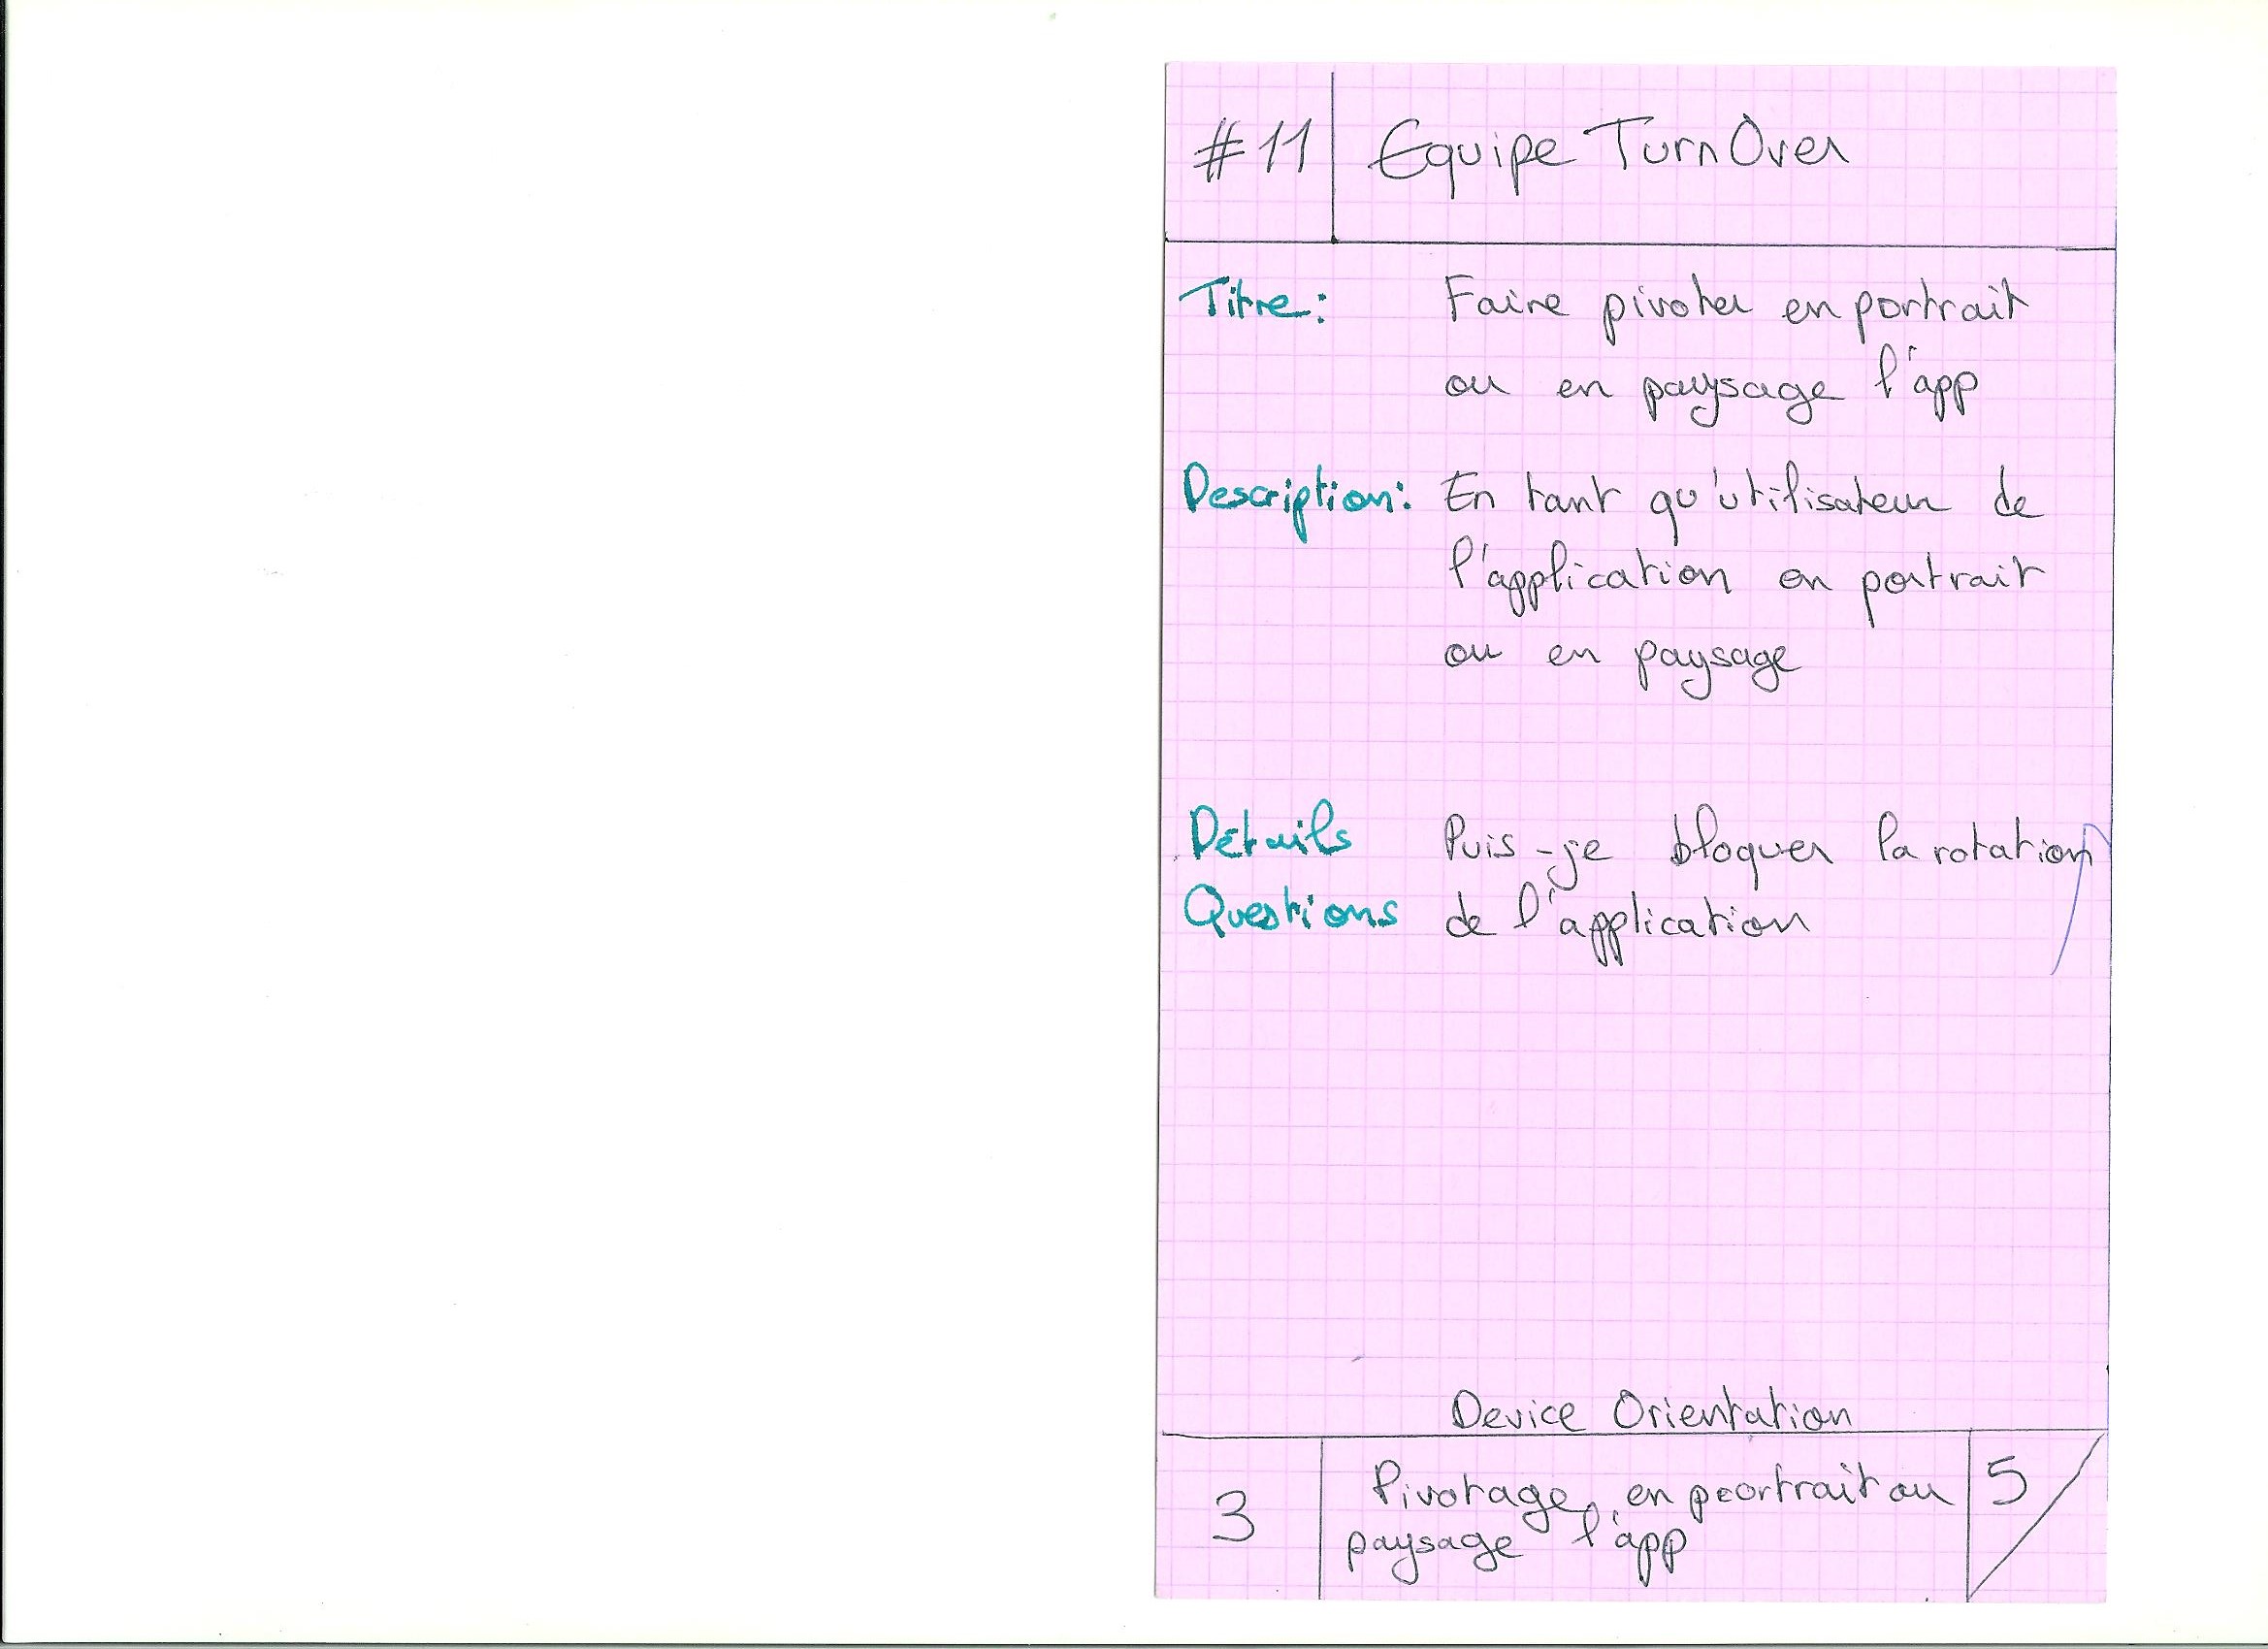 #11 Equipe TurnOver
Titre: Faire pivoter en portrait
ou en paysage l'app
Description: En tant qu'utilisateur de
l'application en portrait
ou en paysage
Détails Puis-je bloquer la rotation
Questions de l'application
Device Orientation
3 Pivotage en portrait ou 5
paysage l'app